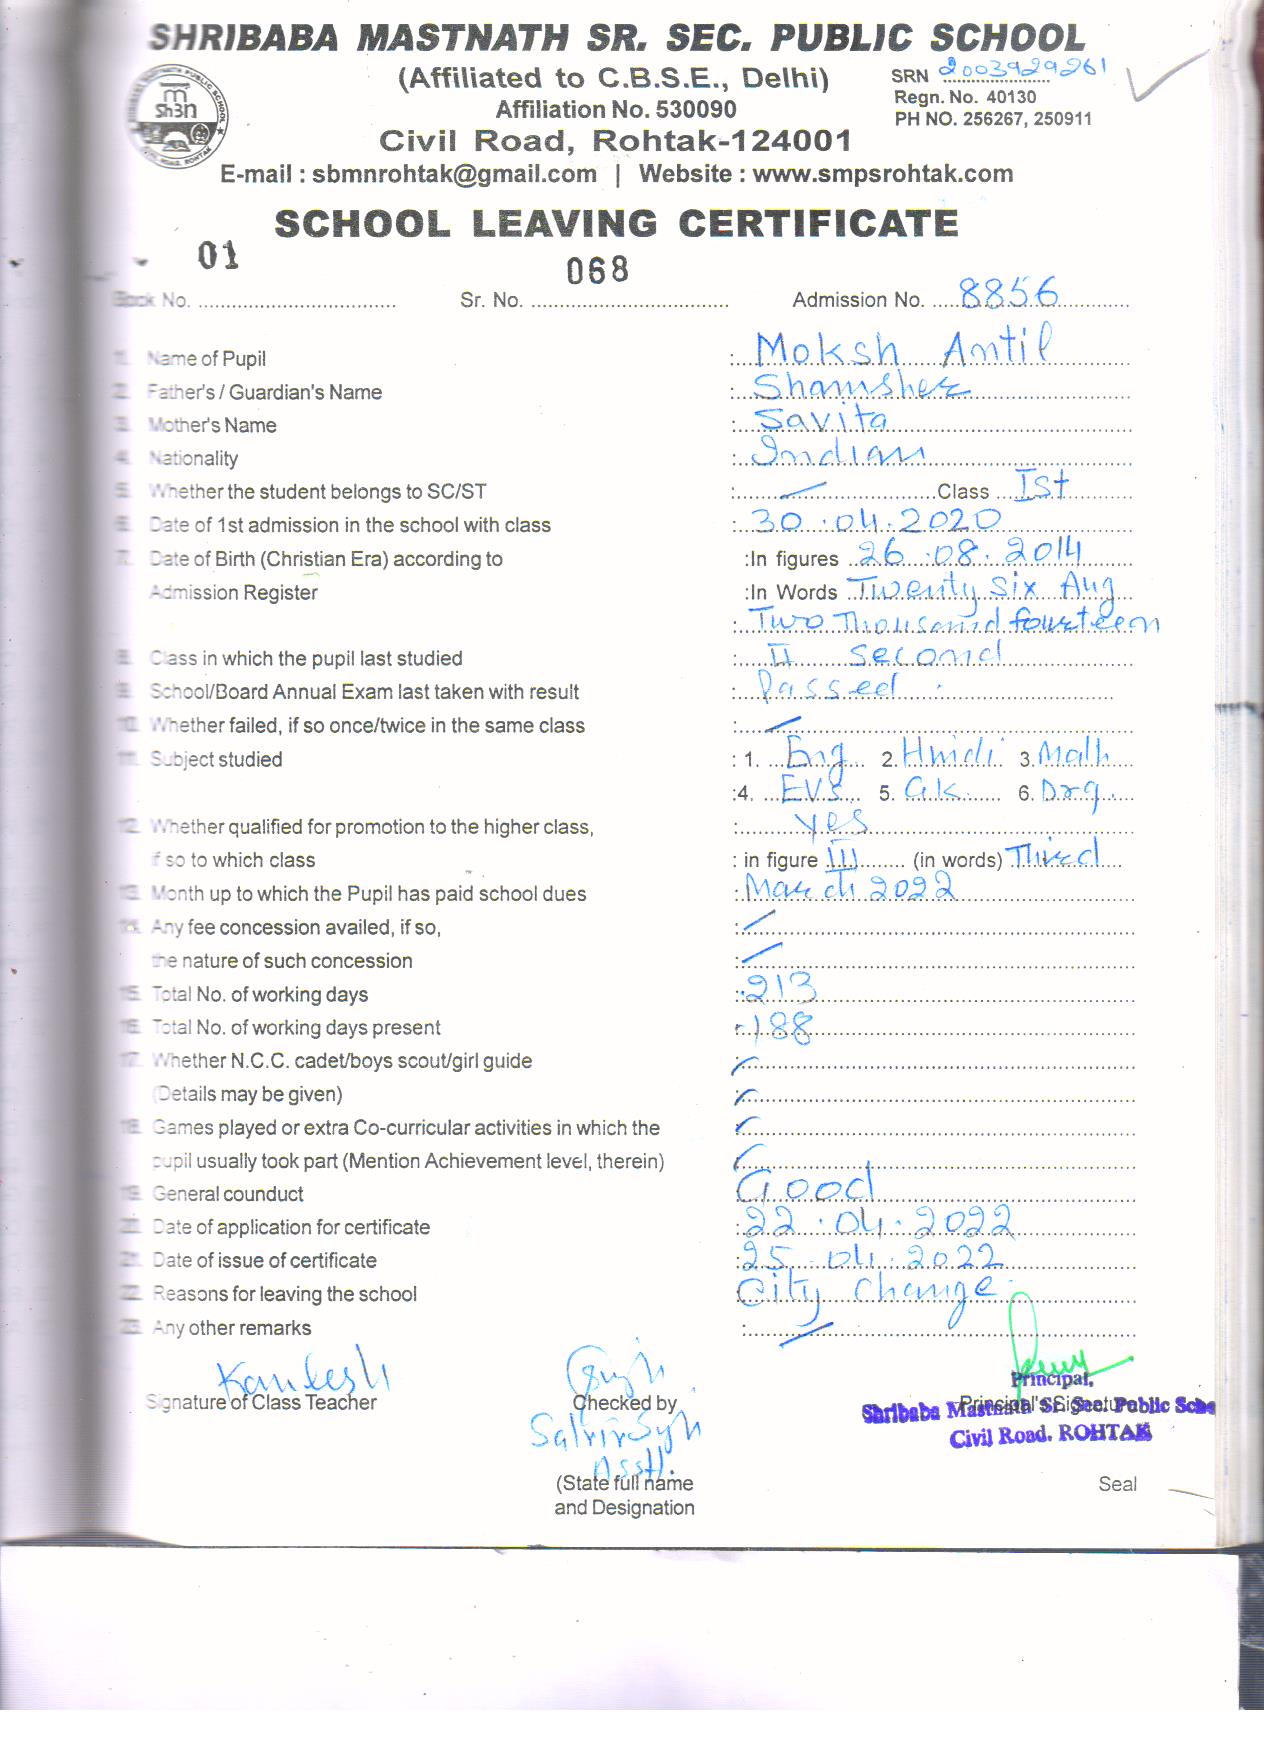 SHRIBABA MASTNATH SR. SEC. PUBLIC SCHOOL
(Affiliated to C.B.S.E., Delhi)
SRN 2003929261
Affiliation No. 530090
Regn. No. 40130
PH NO. 256267, 250911
Civil Road, Rohtak-124001
E-mail : sbmnrohtak@gmail.com | Website : www.smpsrohtak.com
SCHOOL LEAVING CERTIFICATE
Book No. 01 Sr. No. 068 Admission No. 8856
1. Name of Pupil : Moksh Antil
2. Father's / Guardian's Name : Shamsher
3. Mother's Name : Savita
4. Nationality : Indian
5. Whether the student belongs to SC/ST : — Class Ist
6. Date of 1st admission in the school with class : 30.04.2020
7. Date of Birth (Christian Era) according to :In figures 26.08.2014
Admission Register :In Words Twenty six Aug
: Two Thousand fourteen
8. Class in which the pupil last studied : II Second
9. School/Board Annual Exam last taken with result : Passed
10. Whether failed, if so once/twice in the same class : —
11. Subject studied : 1. Eng 2. Hindi 3. Math
:4. EVS 5. G.K. 6. Drg.
12. Whether qualified for promotion to the higher class, : yes
if so to which class : in figure III (in words) Third
13. Month up to which the Pupil has paid school dues : March 2022
14. Any fee concession availed, if so, : —
the nature of such concession : —
15. Total No. of working days : 213
16. Total No. of working days present : 188
17. Whether N.C.C. cadet/boys scout/girl guide : —
(Details may be given) : —
18. Games played or extra Co-curricular activities in which the : —
pupil usually took part (Mention Achievement level, therein) : —
19. General counduct Good
20. Date of application for certificate : 22.04.2022
21. Date of issue of certificate : 25.04.2022
22. Reasons for leaving the school City Change
23. Any other remarks : —
Kamlesh
Signature of Class Teacher Checked by Principal's Signature
Principal,
Shribaba Mastnath Sr. Sec. Public Scho
Civil Road. ROHTAK
Satvir Singh
Asstt.
(State full name Seal
and Designation